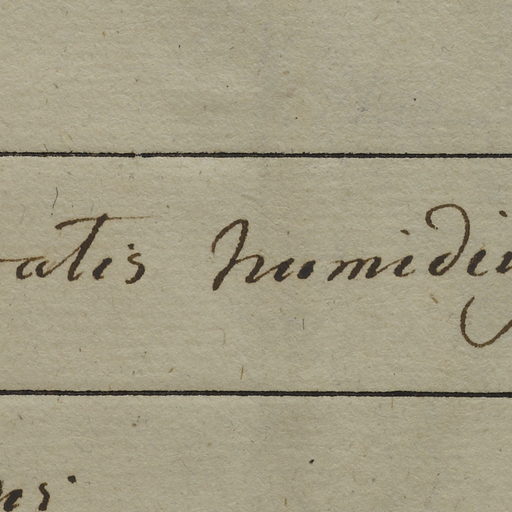 ratis humidis